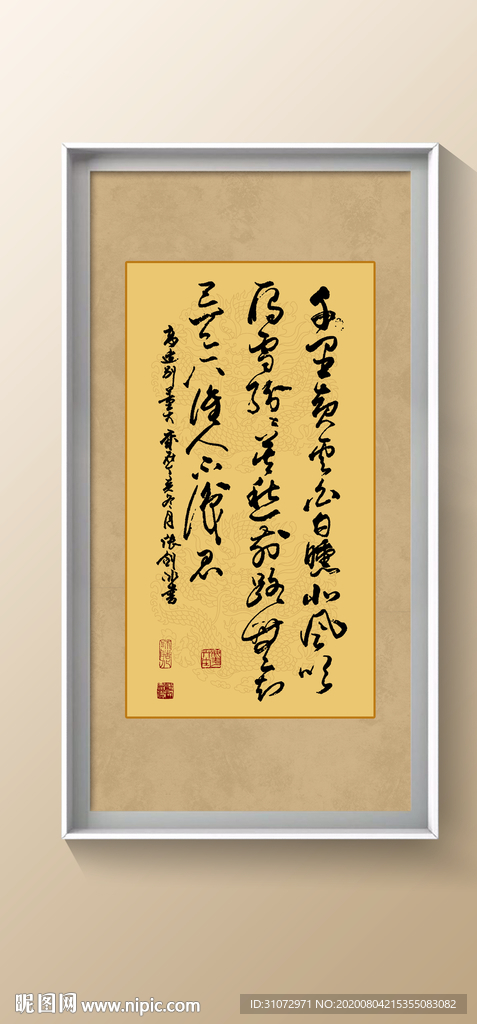 千里黄云白日曛北风吹
雁雪纷纷莫愁前路無知
己天下谁人不识君
高适别董大 冬月 书
昵图网 www.nipic.com
ID:31072971 NO:20200804215355083082